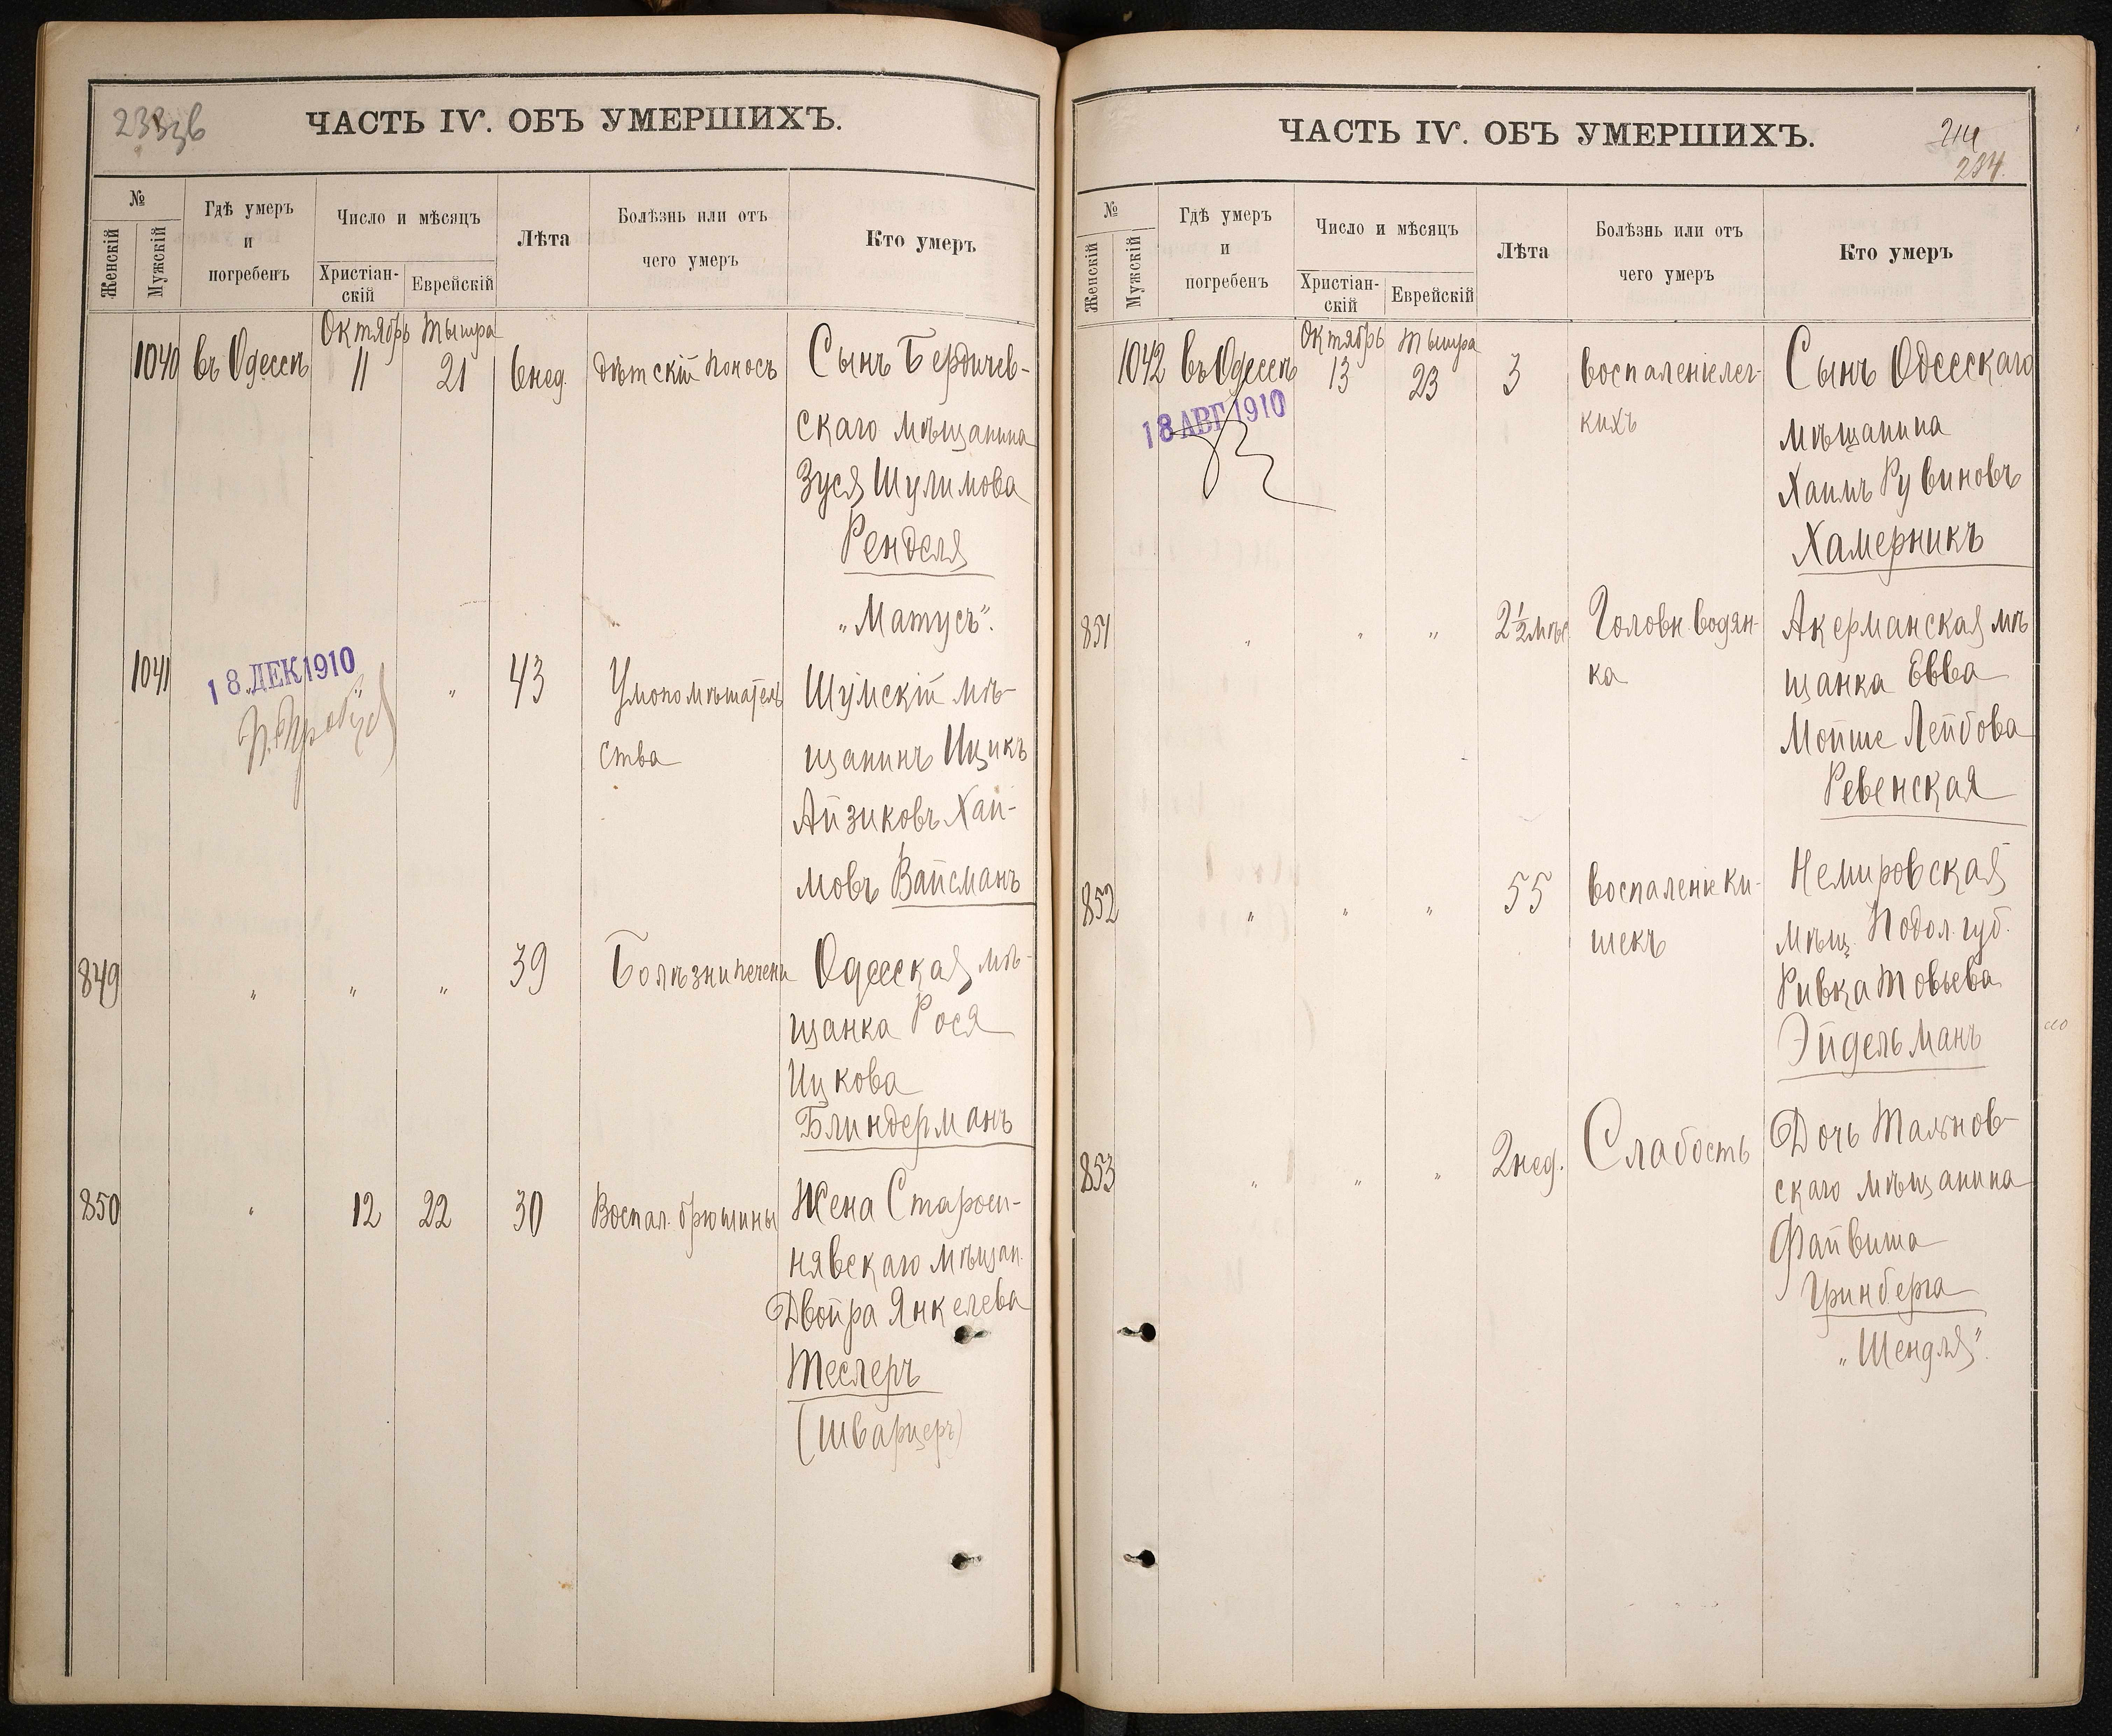 ЧАСТЬ IV. ОБЪ УМЕРШИХЪ.
№
Женскій
Мужскій
Гдѣ умеръ
и
погребенъ
Число и мѣсяцъ
Христіан-
скій
Еврейскій
Лѣта
Болѣзнь или отъ
чего умеръ
Кто умеръ
Октябрь Тышра
1040 въ Одессѣ 11 21 6 нед. дѣтскій поносъ Сынъ Бердичев-
скаго мѣщанина
Зуся Шулимова
Ренделя
„Матусъ".
1041 " " 43 Умопомѣшатель Шумскій мѣ-
18 ДЕК 1910
ства щанинъ Ицикъ
Айзиковъ Хаи-
мовъ Вайсманъ
849 " " " 39 Болѣзни печени Одесская мѣ-
щанка Рося
Ицкова
Блиндерманъ
850 " 12 22 30 Воспал. брюшины Жена Староси-
нявскаго мѣщан.
Двойра Янкелева
Теслеръ
(Шварцеръ)
ЧАСТЬ IV. ОБЪ УМЕРШИХЪ.
234.
№
Женскій
Мужскій
Гдѣ умеръ
и
погребенъ
Число и мѣсяцъ
Христіан-
скій
Еврейскій
Лѣта
Болѣзнь или отъ
чего умеръ
Кто умеръ
Октябрь Тышра
1042 въ Одессѣ 13 23 3 воспаленіе лег- Сынъ Одесскаго
18 АВГ 1910
кихъ мѣщанина
Хаимъ Рувиновъ
Хамерникъ
851 " " " 2½ мѣс Головн. водян- Акерманская мѣ
ка щанка Евва
Мойше Лейбова
Ревенская
852 " " " 55 воспаленіе ки- Немировская
шекъ мѣщ. Подол. губ.
Ривка Товьева
Эйдельманъ
853 " " " 2 нед. Слабость Дочь Тальнов-
скаго мѣщанина
Файвиша
Гринберга
„Шендля".